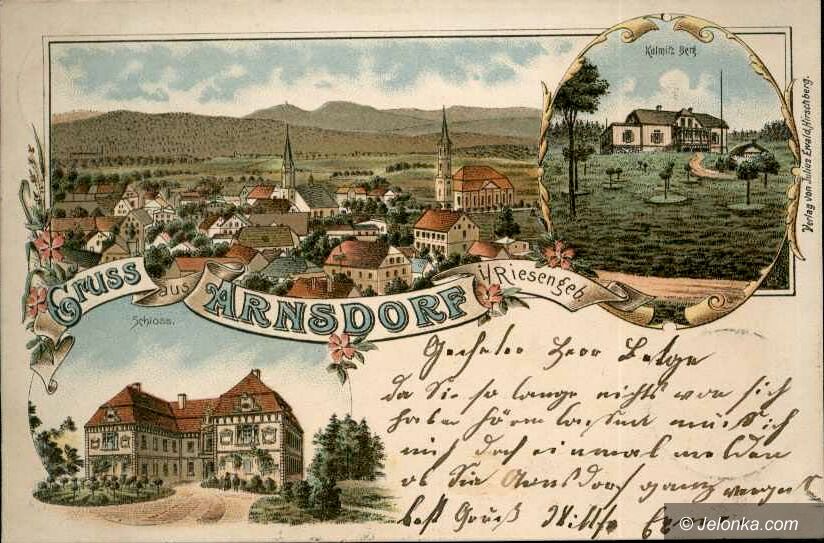 Kulmitz Berg
Verlag von Julius Ewald, Hirschberg.
Gruss aus ARNSDORF i/Riesengeb.
Schloss.
Geehrter Herr
da Sie so lange nichts von sich
haben hören lassen muss ich
mich doch einmal melden
ob Sie Arnsdorf ganz
best Gruß
© Jelonka.com